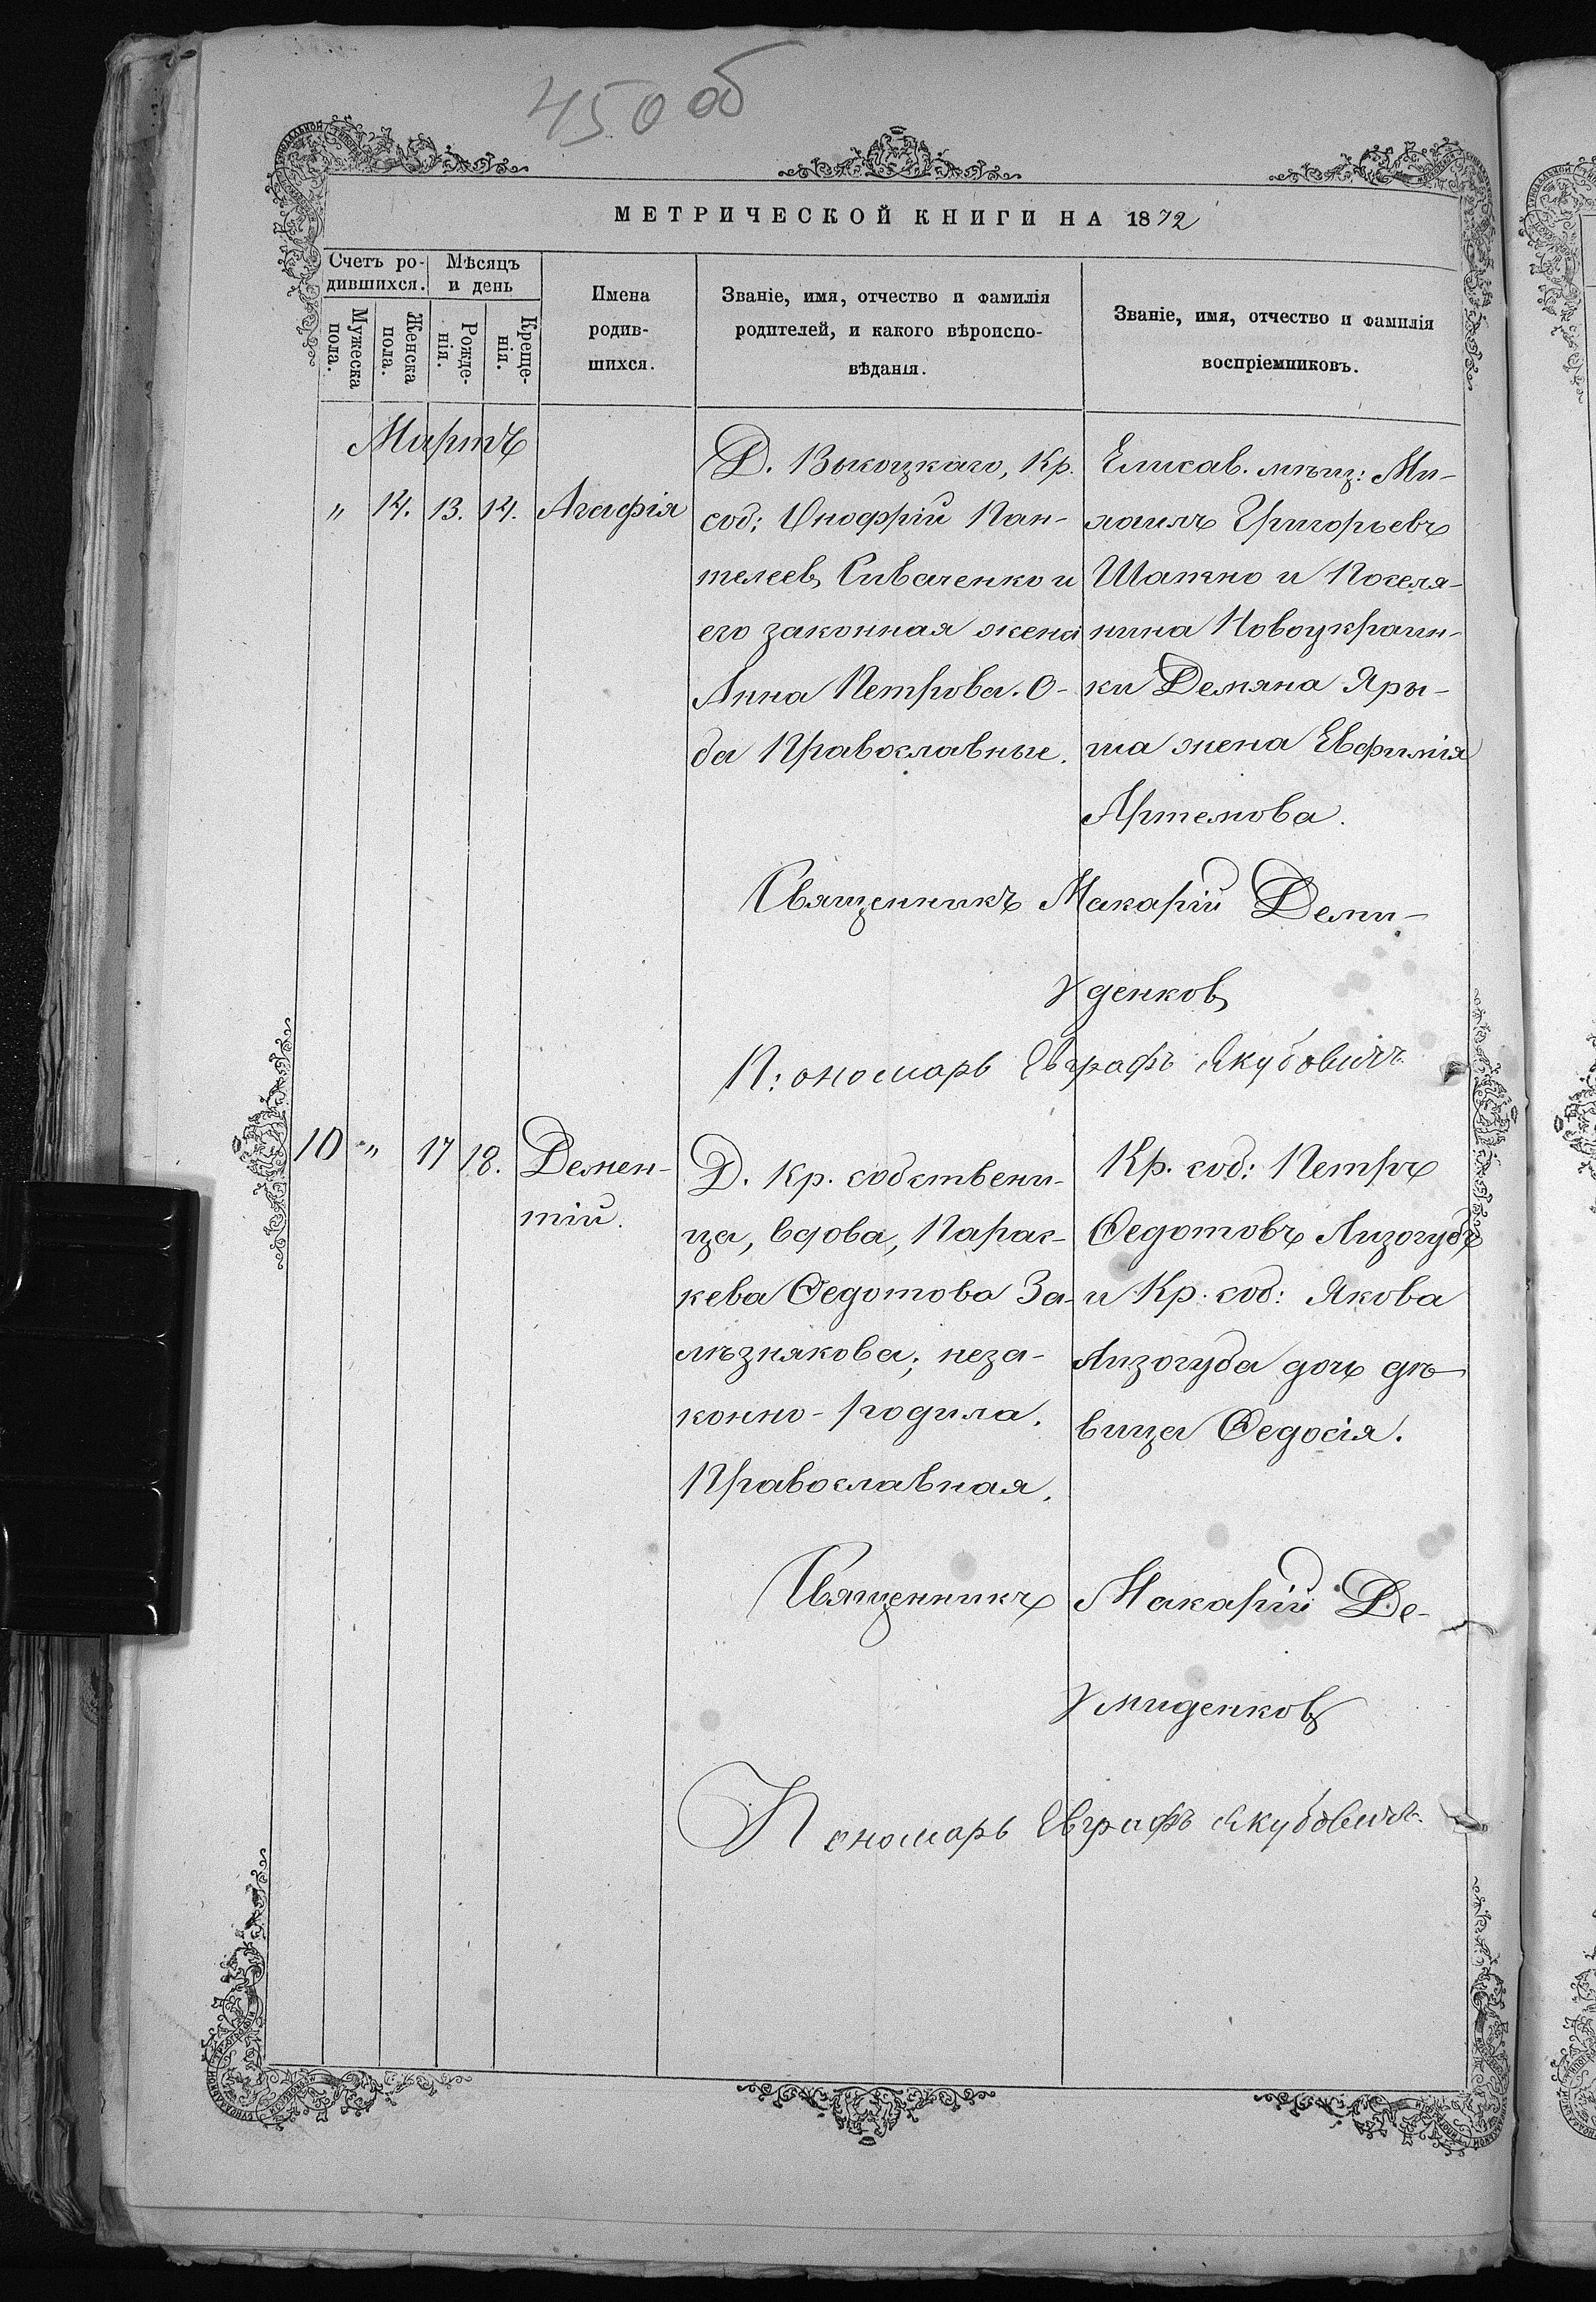 450 об
МЕТРИЧЕСКОЙ КНИГИ НА 1872
Счетъ ро-
дившихся.
Мѣсяцъ
и день
Мужеска
пола.
Женска
пола.
Рожде-
нія.
Креще-
нія.
Имена
родив-
шихся.
Званіе, имя, отчество и фамилія
родителей, и какого вѣроиспо-
вѣданія.
Званіе, имя, отчество и фамилія
воспріемниковъ.
Мартъ
" 14. 13. 14. Агафія
Д. Выкоцкаго, Кр.
соб: Онофрій Пан-
телеев, Сиваченко и
его законная жена
Анна Петрова. О-
ба Православные.
Елисав. мѣщ: Ми-
хаилъ Григорьевъ
Шатно и Поселя-
нина Новоукраин-
ки Демяна Яры-
ша жена Евфимія
Артемова.
Священникъ Макарій Деми-
денков
П: ономарь Евграфъ Якубовичъ
10 " 17 18. Демен-
тій.
Д. Кр. собствени-
ца, вдова, Парас-
кева Ѳедотова За-
лѣзнякова; неза-
конно-родила.
Православная.
Кр. соб: Петръ
Ѳедотовъ Лизогубъ
и Кр. соб: Якова
Лизогуба дочь дѣ-
вица Ѳедосія.
Священникъ Макарій Де-
миденков
Пономарь Евграфъ Якубовичъ